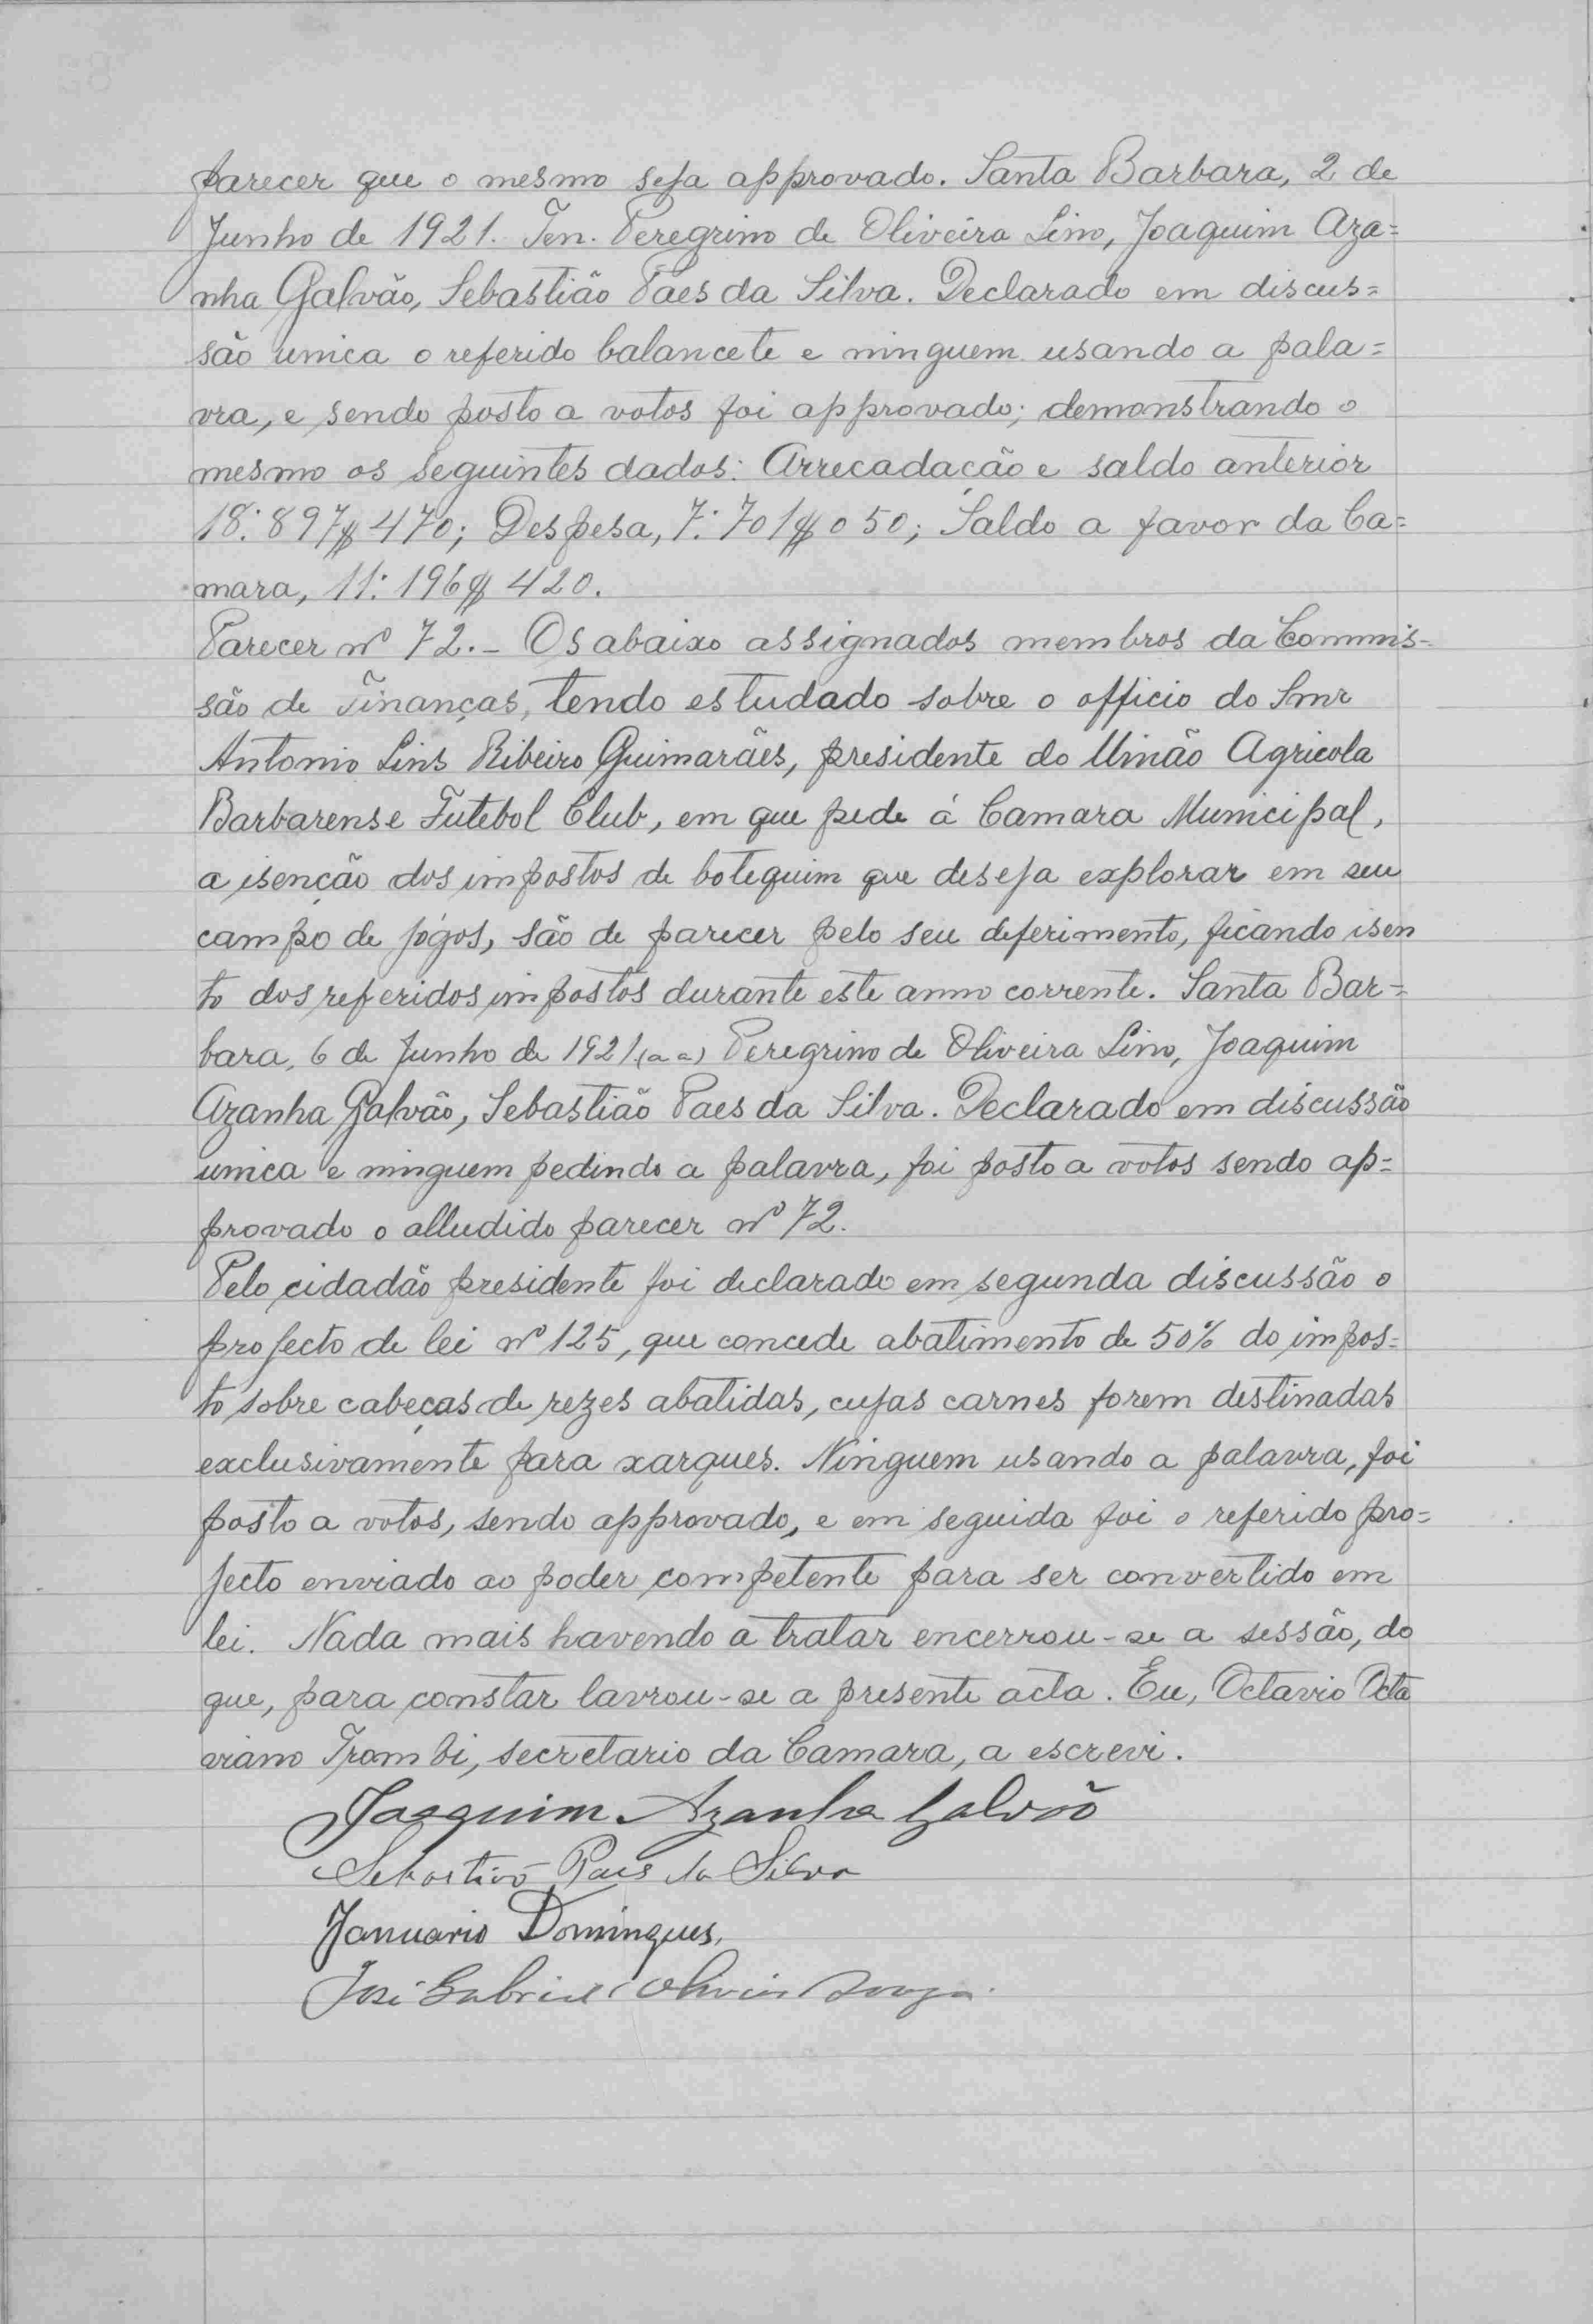 parecer que o mesmo seja approvado. Santa Barbara, 2 de
Junho de 1921. Ten. Peregrino de Oliveira Lino, Joaquim Aza=
nha Galvão, Sebastião Paes da Silva. Declarado em discus=
são unica o referido balancete e ninguem usando a pala=
vra, e sendo posto a votos foi approvado; demonstrando o
mesmo os seguintes dados: Arrecadação e saldo anterior
18:897$470; Despesa, 7:701$050; Saldo a favor da Ca=
mara, 11:196$420.
Parecer nº 72.- Os abaixo assignados membros da Commis-
são de Finanças, tendo estudado sobre o officio do Snr
Antonio Lins Ribeiro Guimarães, presidente do União Agricola
Barbarense Futebol Club, em que pede á Camara Municipal,
a isenção dos impostos de botequim que deseja explorar em seu
campo de jógos, são de parecer pelo seu deferimento, ficando isen
to dos referidos impostos durante este anno corrente. Santa Bar=
bara, 6 de Junho de 1921 (a a) Peregrino de Oliveira Lino, Joaquim
Azanha Galvão, Sebastião Paes da Silva. Declarado em discussão
unica e ninguem pedindo a palavra, foi posto a votos sendo ap=
provado o alludido parecer nº 72.
Pelo cidadão presidente foi declarado em segunda discussão o
projecto de lei nº 125, que concede abatimento de 50% do impos=
to sobre cabeças de rezes abatidas, cujas carnes forem destinadas
exclusivamente para xarques. Ninguem usando a palavra, foi
posto a votos, sendo approvado, e em seguida foi o referido pro=
jecto enviado ao poder competente para ser convertido em
lei. Nada mais havendo a tratar encerrou-se a sessão, do
que, para constar lavrou-se a presente acta. Eu, Octavio Octa
viano Trombi, secretario da Camara, a escrevi.
Joaquim Azanha Galvão
Sebastião Paes da Silva
Januario Domingues.
José Gabriel Oliveira Souza.